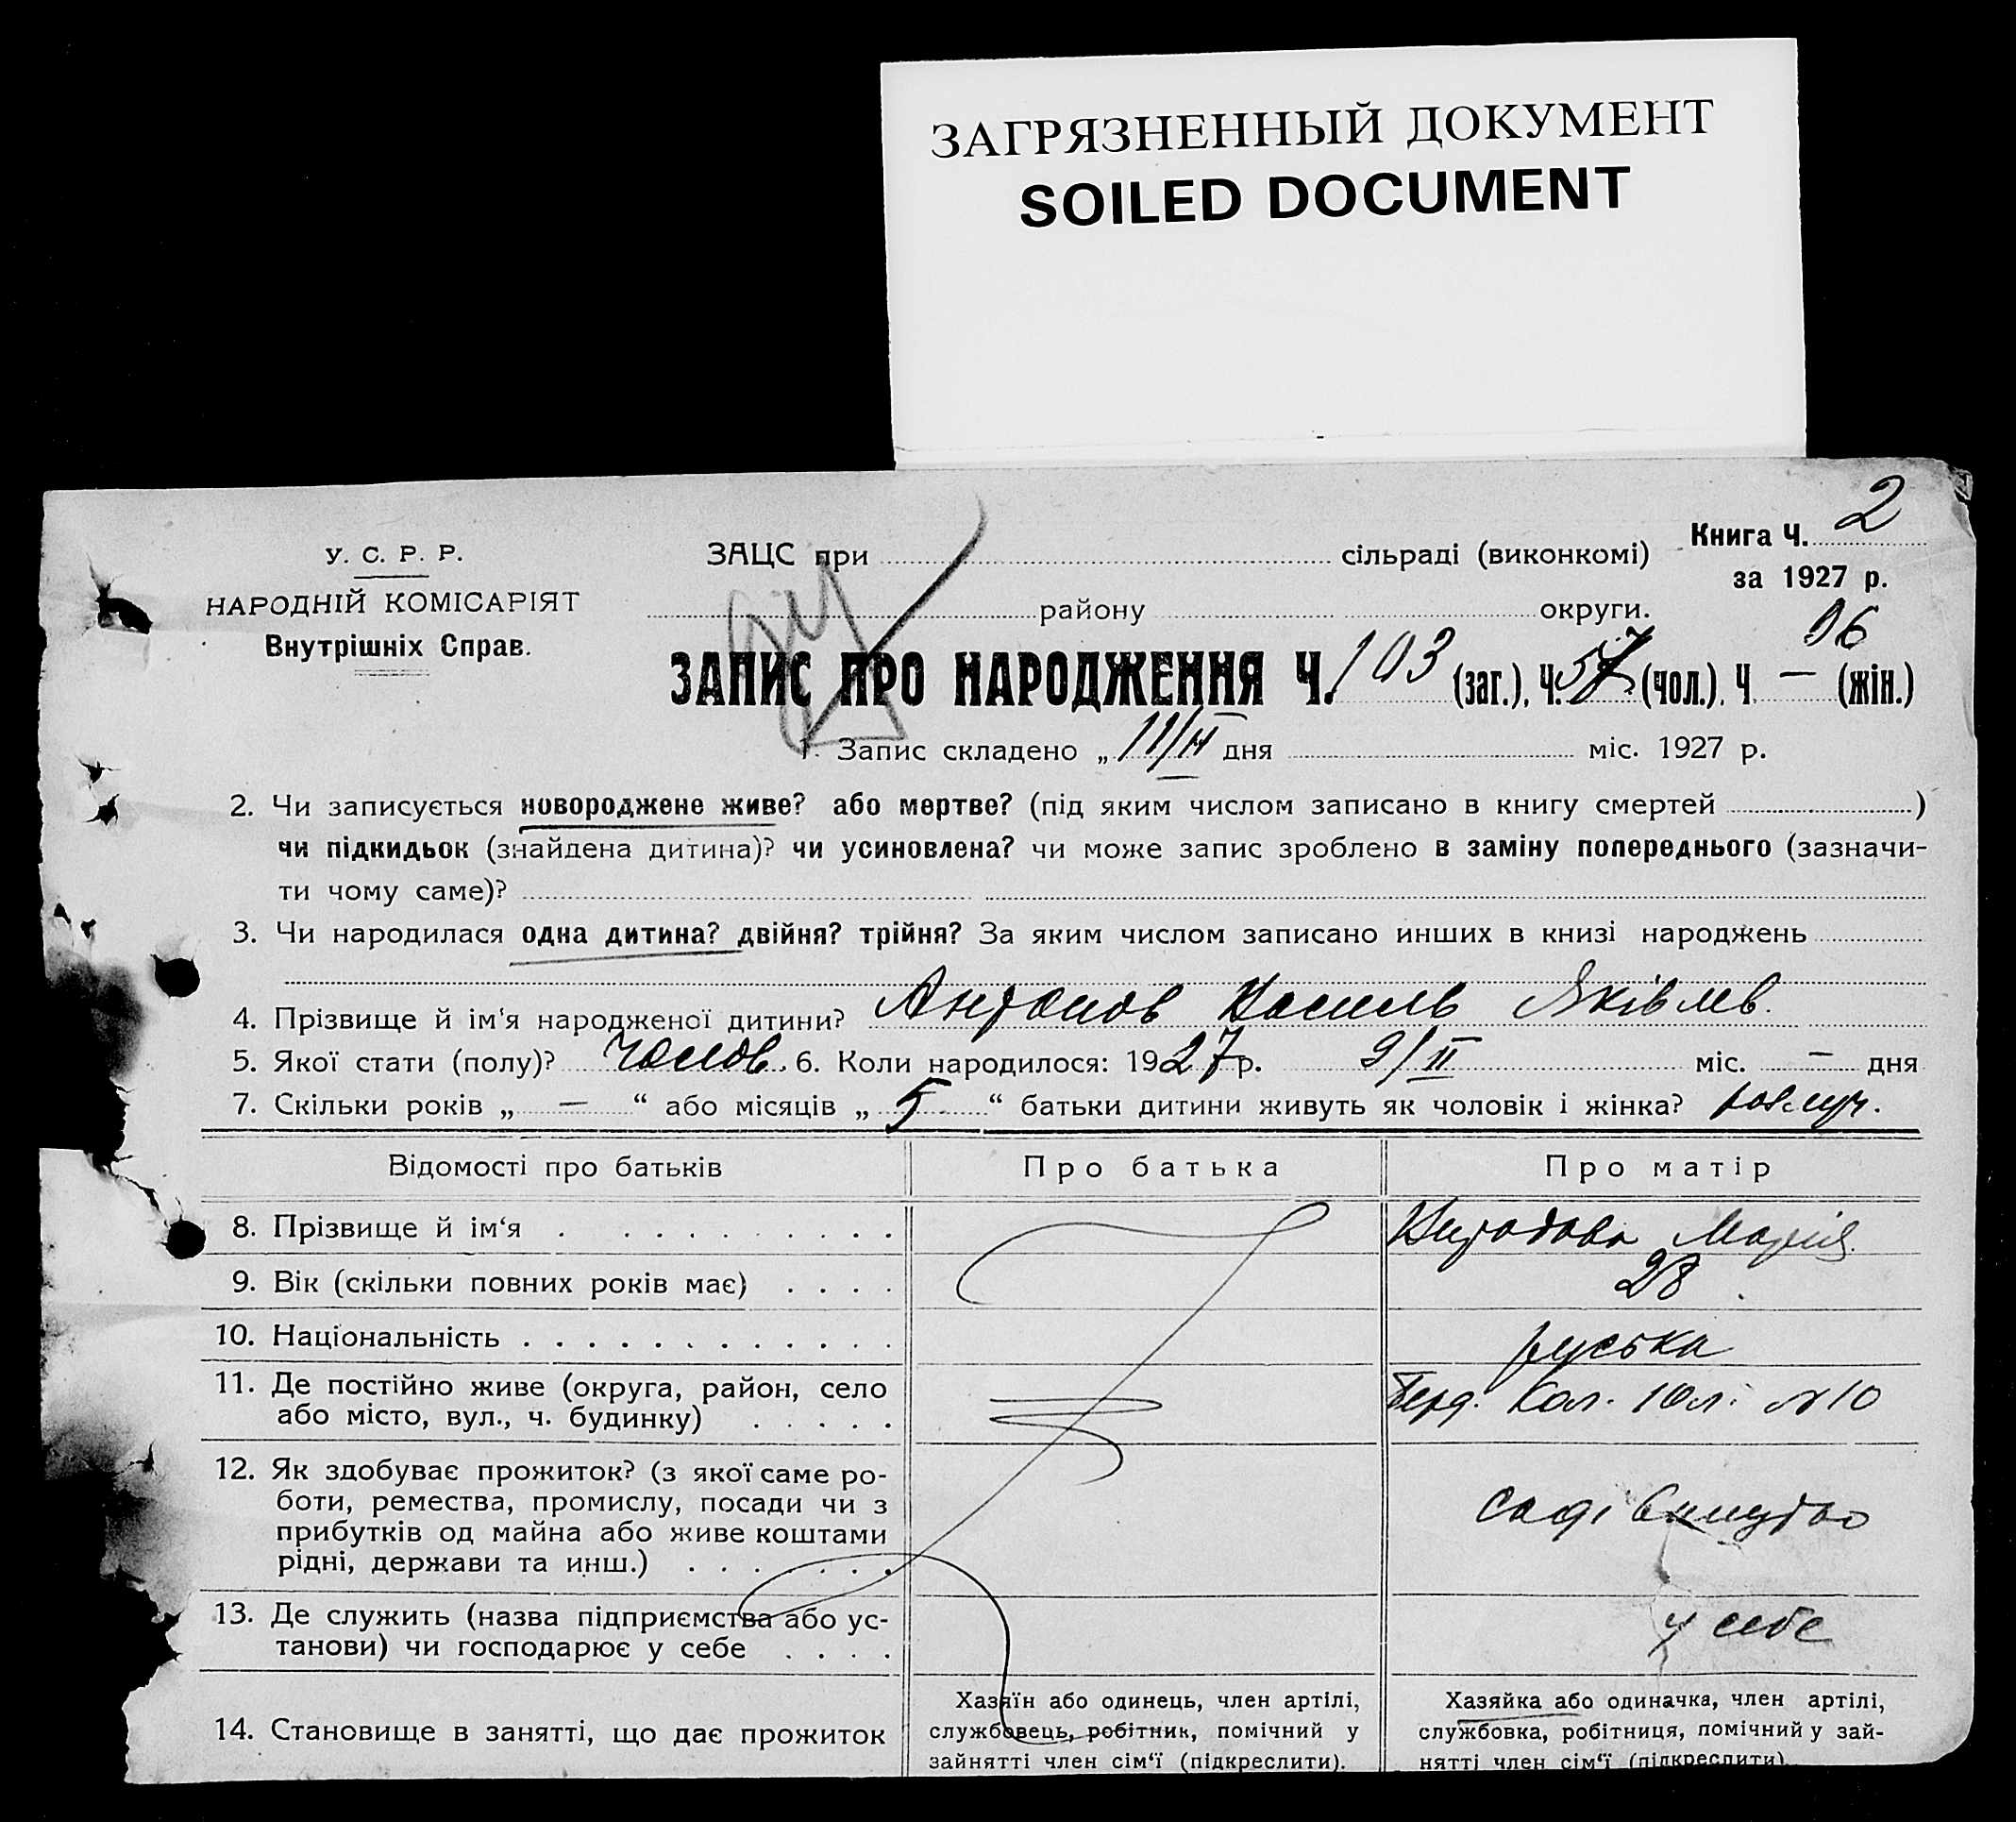 ЗАГРЯЗНЕННЫЙ ДОКУМЕНТ
SOILED DOCUMENT
Книга Ч. 2
за 1927 р.
У. С. Р. Р.
НАРОДНІЙ КОМІСАРІЯТ
Внутрішніх Справ.
ЗАЦС при сільраді (виконкомі)
району округи.
96
ЗАПИС ПРО НАРОДЖЕННЯ Ч. 103 (заг.), Ч. 57 (чол.), Ч. — (жін.)
1. Запис складено „ 11/II дня міс. 1927 р.
2. Чи записується новороджене живе? або мертве? (під яким числом записано в книгу смертей )
чи підкидьок (знайдена дитина)? чи усиновлена? чи може запис зроблено в заміну попереднього (зазначи-
ти чому саме)?
3. Чи народилася одна дитина? двійня? трійня? За яким числом записано инших в книзі народжень
4. Прізвище й ім'я народженої дитини? Антонов Василь Яківлев.
5. Якої стати (полу)? чолов. 6. Коли народилося: 1927 р. 9/II міс. — дня
7. Скільки років „ — “ або місяців „ 5 “ батьки дитини живуть як чоловік і жінка?
Відомості про батьків Про батька Про матір
8. Прізвище й ім‘я Марія
9. Вік (скільки повних років має) 28
10. Національність руська
11. Де постійно живе (округа, район, село
або місто, вул., ч. будинку) Кол. №10
12. Як здобуває прожиток? (з якої саме ро-
боти, ремества, промислу, посади чи з
прибутків од майна або живе коштами
рідні, держави та инш.) садівництво
13. Де служить (назва підприємства або ус-
танови) чи господарює у себе у себе
14. Становище в занятті, що дає прожиток
Хазяїн або одинець, член артілі,
службовець, робітник, помічний у
зайнятті член сім‘ї (підкреслити).
Хазяйка або одиначка, член артілі,
службовка, робітниця, помічний у зай-
нятті член сім‘ї (підкреслити).